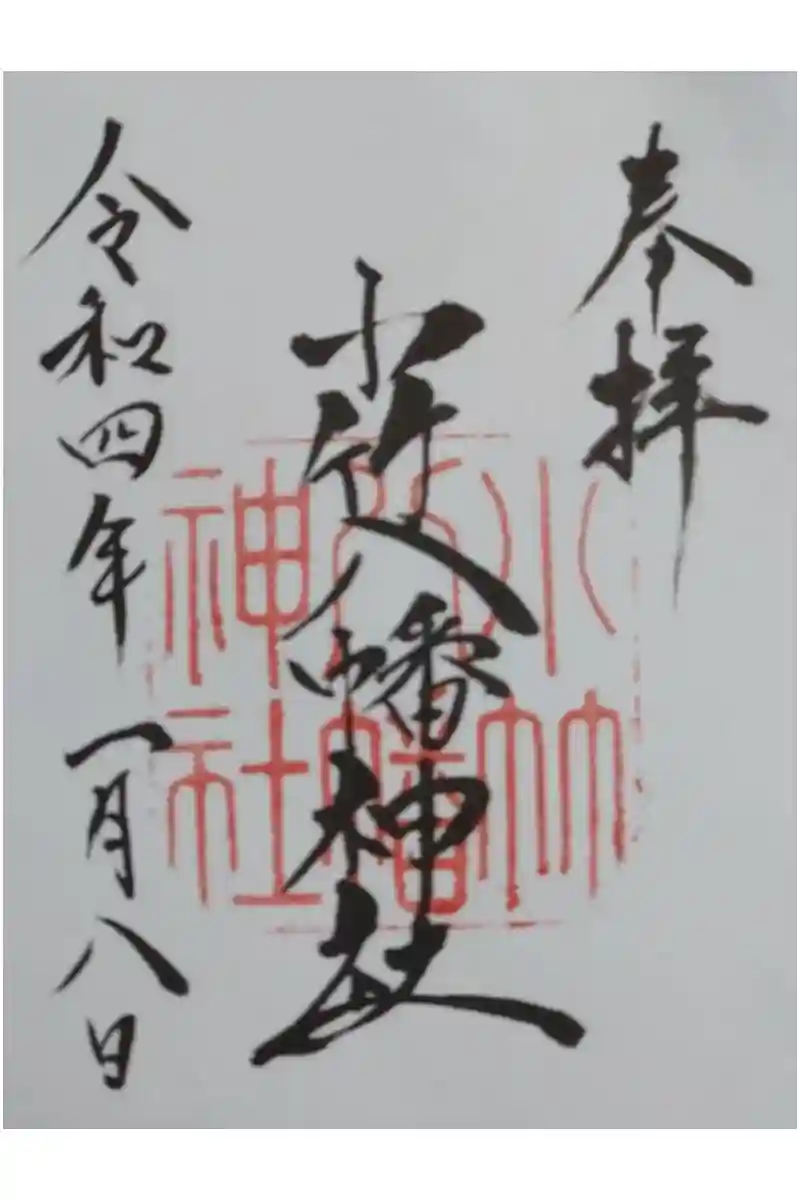 奉拝
小竹八幡神社
令和四年一月八日
小竹
八幡
神社